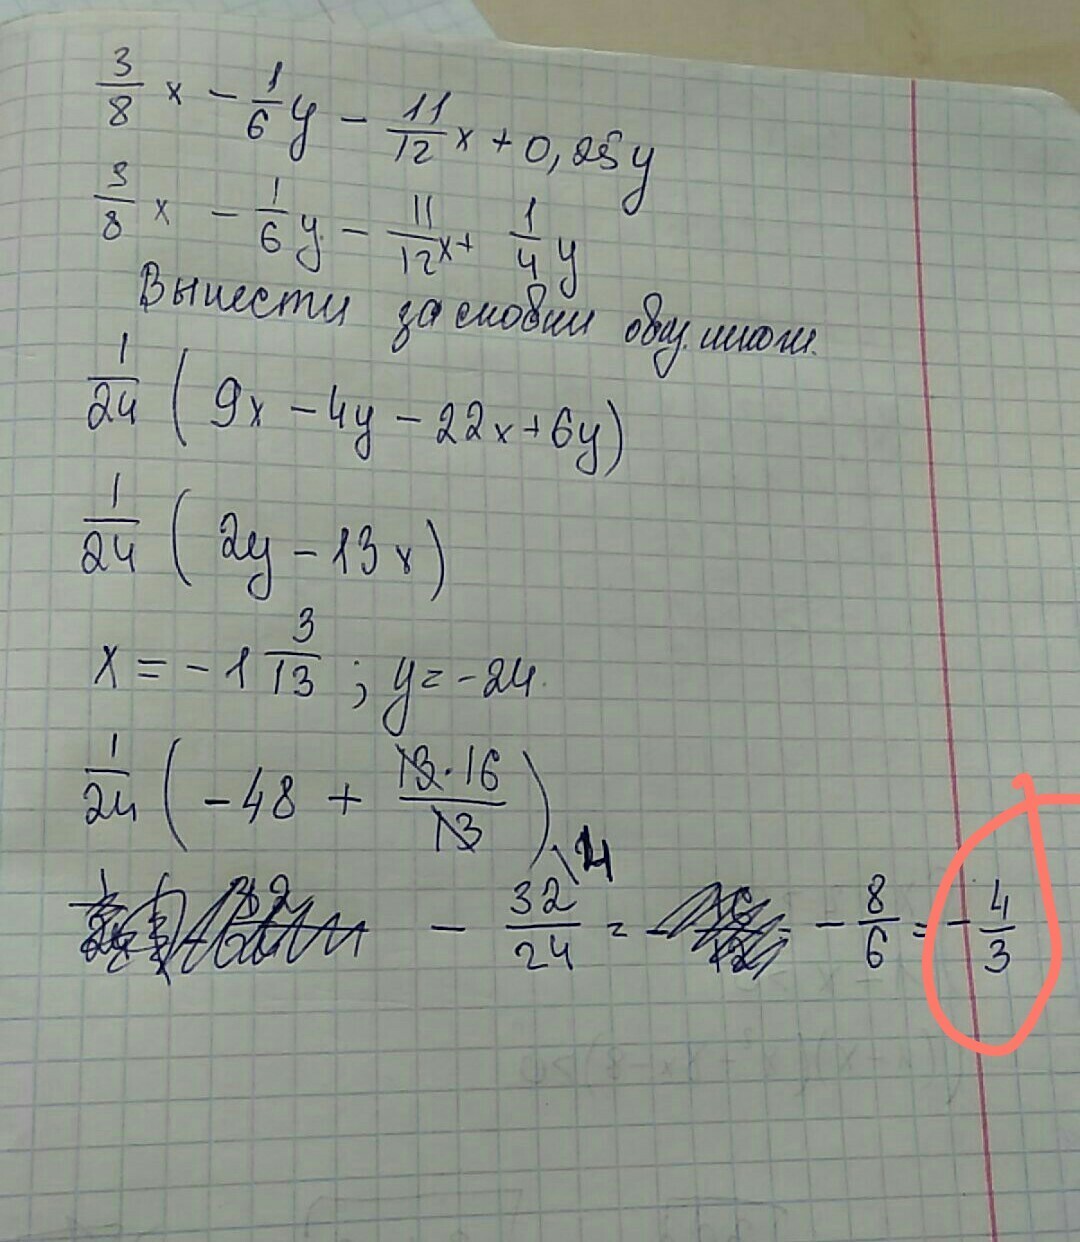 3/8 x - 1/6 y - 11/12 x + 0,25y
3/8 x - 1/6 y - 11/12 x + 1/4 y
Вынести за скобки общ. множ.
1/24 (9x - 4y - 22x + 6y)
1/24 (2y - 13x)
x = -1 3/13 ; y = -24.
1/24 (-48 + 13·16/13)
- 32/24 = - 8/6 = - 4/3